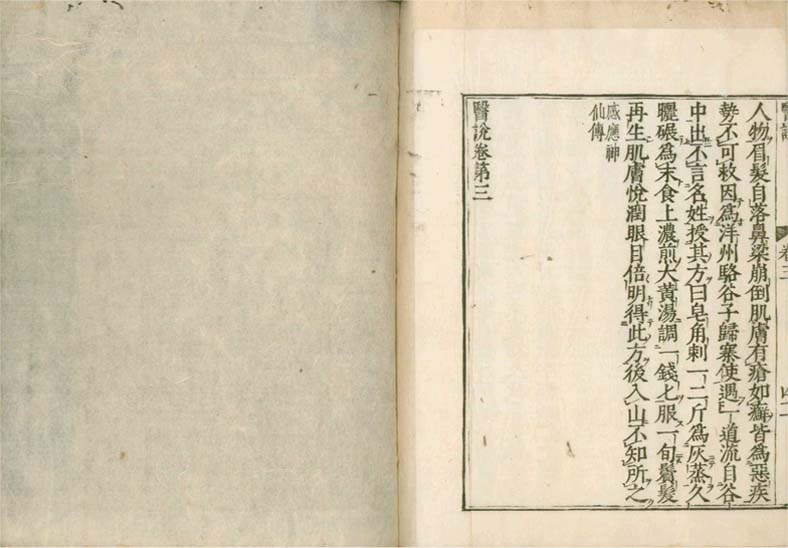 醫說 卷三
人物眉髮自落鼻梁崩倒肌膚有瘡如癬皆爲惡疾
勢不可救因爲洋州駱谷子歸寨使遇一道流自谷
中出不言名姓授其方曰皂角刺一二斤爲灰蒸久
曬碾爲末食上濃煎大黃湯調一錢七服一旬鬚髮
再生肌膚悅潤眼目倍明得此方後入山不知所之
感應神
仙傳
醫說卷第三